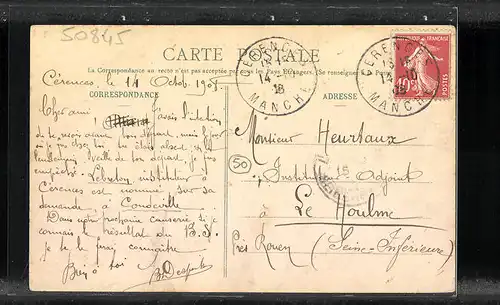 50845
CARTE POSTALE
La Correspondance au recto n'est pas acceptée par tous les Pays Étrangers. (Se renseigner
CORRESPONDANCE
ADRESSE
CERENCES
14 - 10
MANCHE
CERENCES
14 10
MANCHE
RÉPUBLIQUE FRANÇAISE
10c
POSTES
Cérences le 14 Octob. 1908
Cher ami J'avais l'intention
de te voir avant ton départ, mais le jour
où je
tu étais absent
veille de ton départ, je t'ai
Lebreton instituteur à
Cérences est nommé sur sa
demande à Condeville
Dans une prochaine causerie si je
connais le résultat du B.S.
je te le ferai connaître
Bien à toi
Monsieur Heurtaux
Instituteur Adjoint
à Le Houlme
Près Rouen (Seine-Inférieure)
50
15